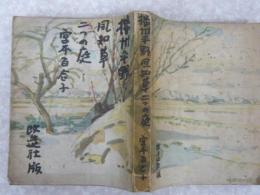 播州平野
風知草
二つの庭
宮本百合子
版
播州平野 風知草 二つの庭
宮本百合子